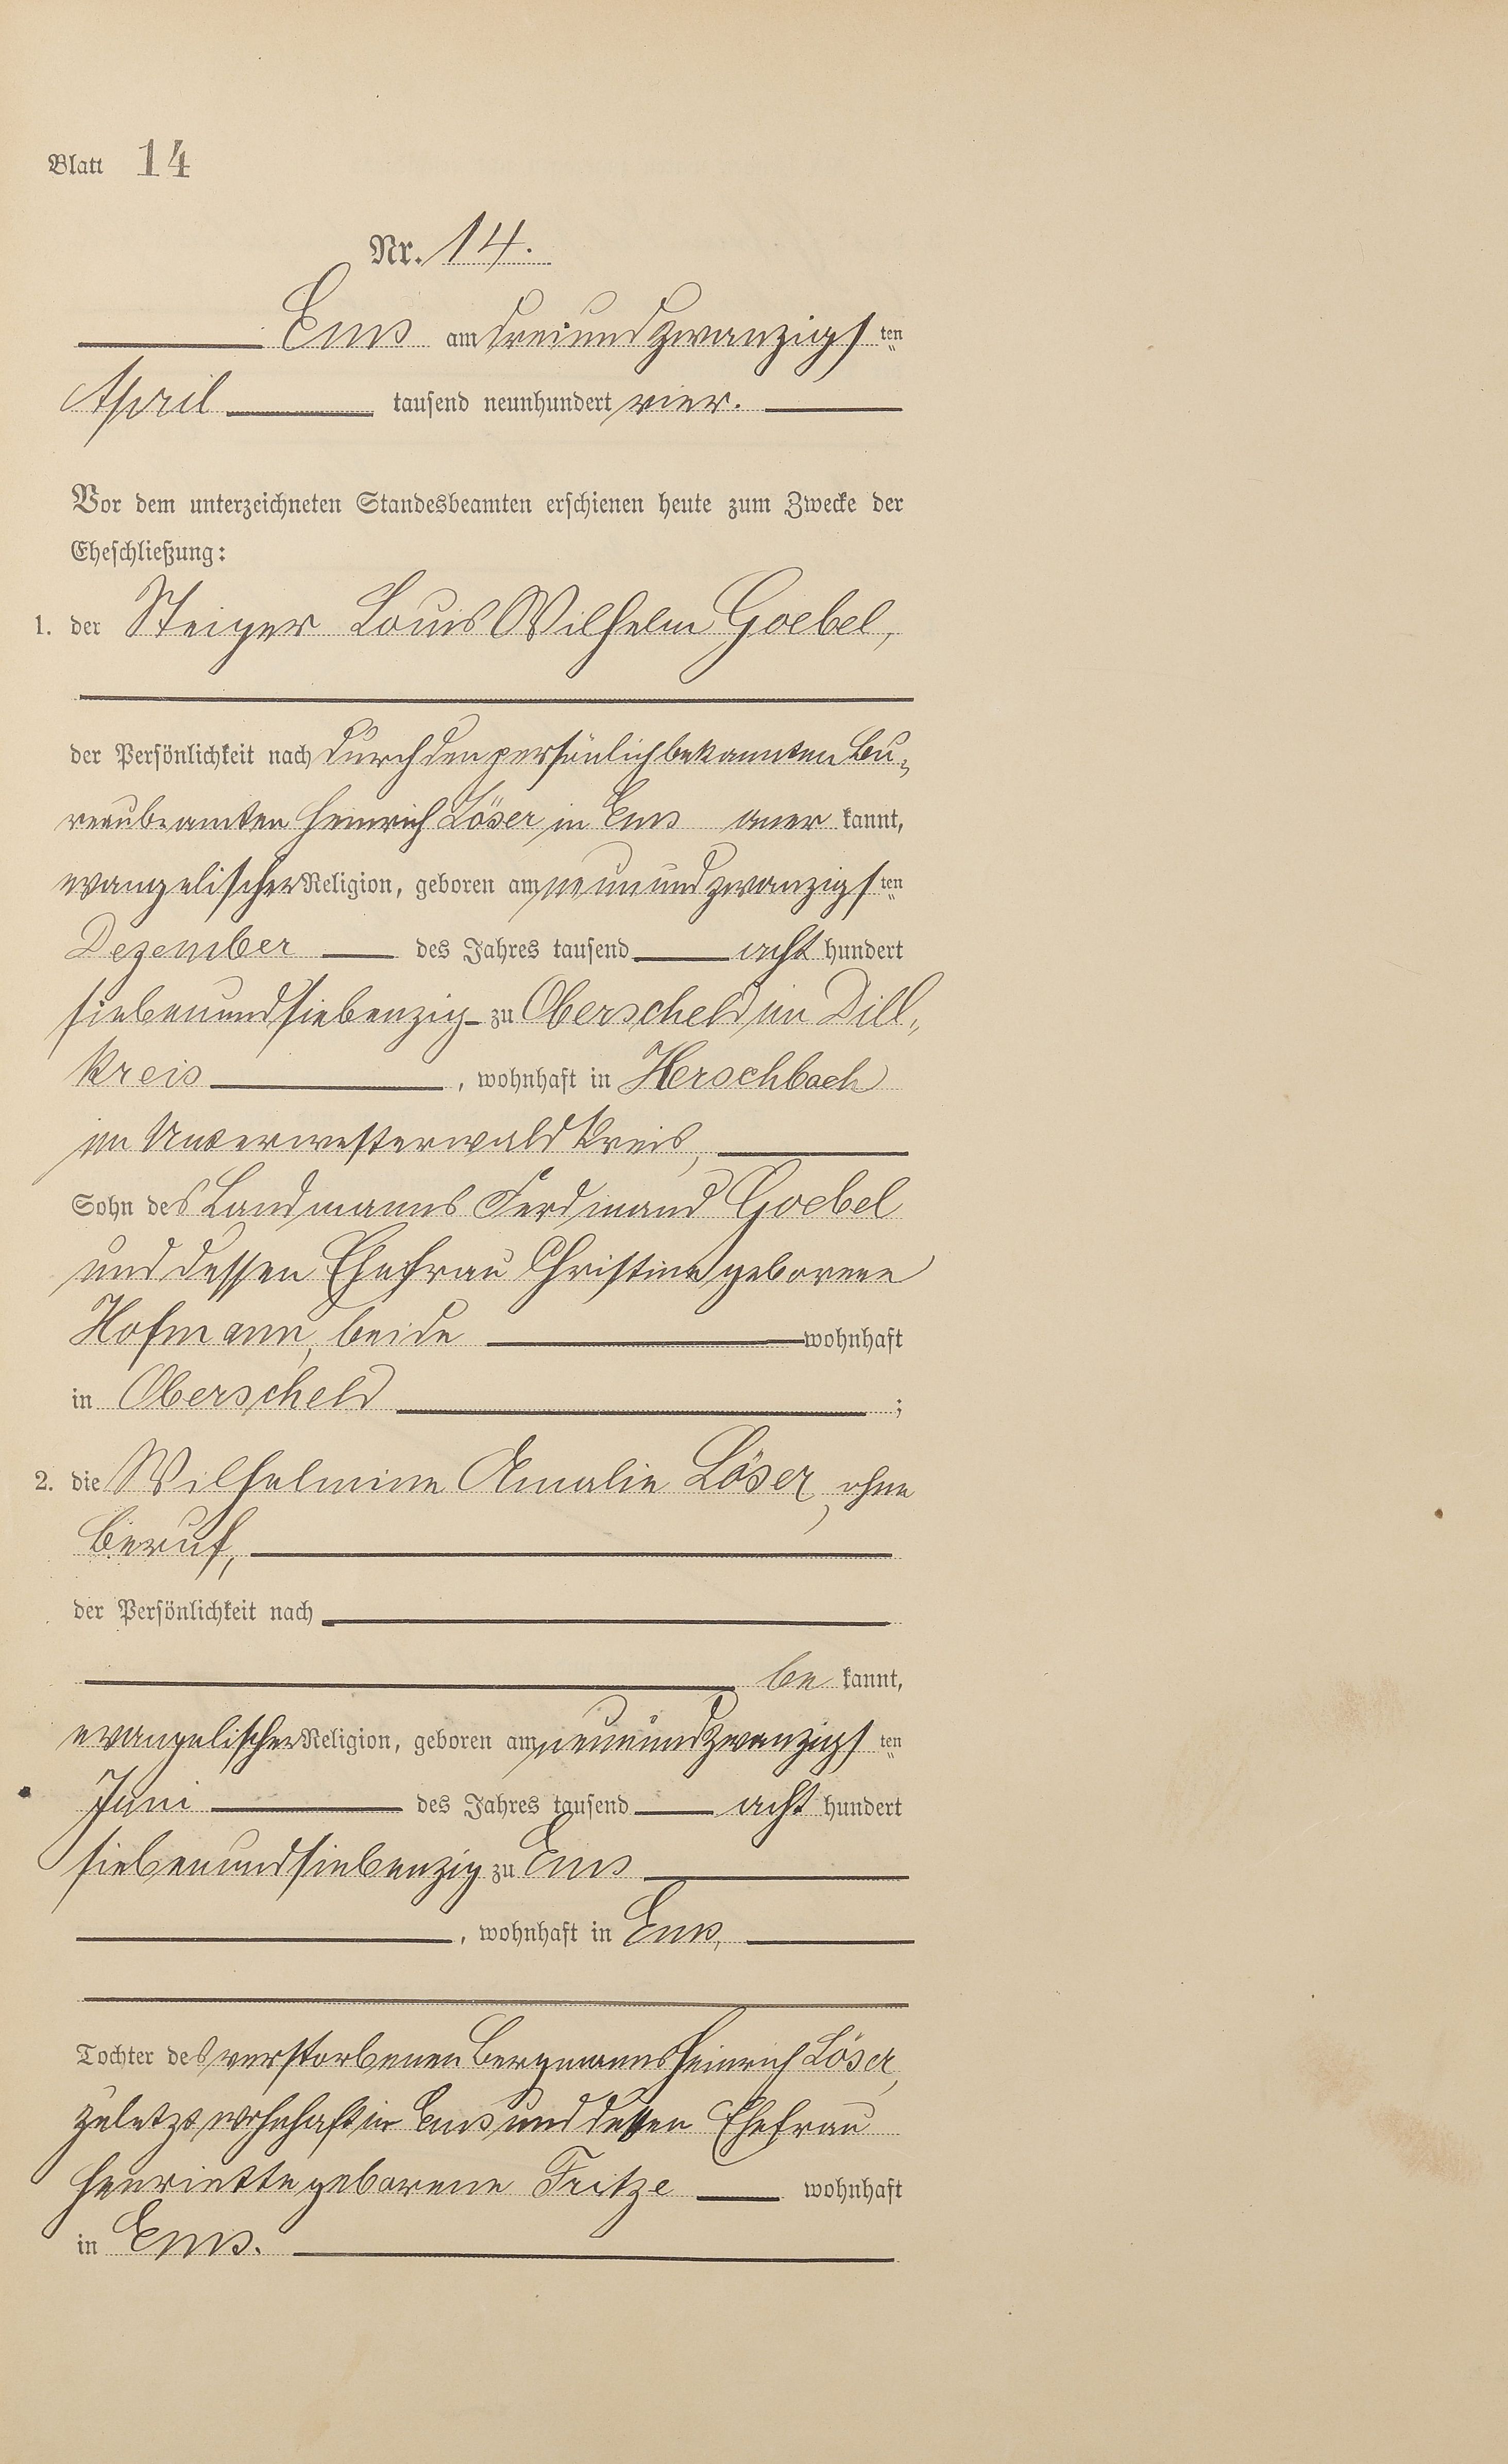 Blatt 14
Nr. 14.
Ems am dreiundzwanzigs ten
April tausend neunhundert vier.
Vor dem unterzeichneten Standesbeamten erschienen heute zum Zwecke der
Eheschließung:
1. der Steiger Louis Wilhelm Goebel,
der Persönlichkeit nach durch den persönlich bekannten Bu-
reaubeamten Heinrich Löser in Ems aner kannt,
evangelischer Religion, geboren am neunundzwanzigs ten
Dezember des Jahres tausend acht hundert
siebenundsiebenzig zu Oberscheld im Dill-
kreis, wohnhaft in Herschbach
im Unterwesterwaldkreis,
Sohn des Landmanns Ferdinand Goebel
und dessen Ehefrau Christine geborene
Hofmann, beide wohnhaft
in Oberscheld;
2. die Wilhelmine Amalie Löser, ohne
Beruf,
der Persönlichkeit nach
be kannt,
evangelischer Religion, geboren am neunundzwanzigs ten
Juni des Jahres tausend acht hundert
siebenundsiebenzig zu Ems
, wohnhaft in Ems,
Tochter des verstorbenen Bergmanns Heinrich Löser,
zuletzt wohnhaft in Ems und dessen Ehefrau
Henriette geborene Fritze wohnhaft
in Ems.